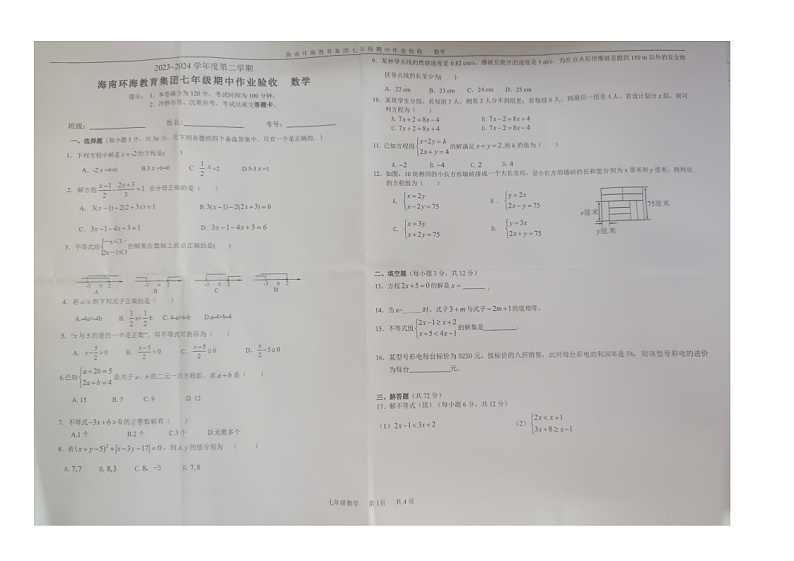 海南环海教育集团七年级期中作业验收 数学
2023-2024 学年度第二学期
海南环海教育集团七年级期中作业验收 数学
提示：1. 本卷满分为 120 分，考试时间为 100 分钟；
2. 冷静作答，沉着应考，考试结束交答题卡.
班级： 姓名： 考号：
一、选择题（每小题 3 分，共 36 分，在下列各题的四个备选答案中，只有一个是正确的.）
1. 下列方程中解是 x=-2 的方程是( )
A. -2 x+4=0 B.3 x+6=0 C. 1/2 x=2 D.5-3 x=1
2. 解方程 (x-1)/2 - (2x+3)/3 =1 去分母正确的是（ ）
A. 3(x-1)-2(2+3x)=1 B. 3(x-1)-2(2x+3)=6
C. 3x-1-4x+3=1 D. 3x-1-4x+3=6
3. 不等式组 {-x<3 2x-1≤3 的解集在数轴上表示正确的是( )
A B C D
4. 若 a>b 则下列式子正确的是（ ）
A.-4a>-4b B. 1/2 a<1/2 b C. 4-a>4-b D.a-4>b-4
5. “x 与 5 的差的一半是正数”，用不等式可表示为（ ）
A. x-5/2>0 B. (x-5)/2>0 C. (x-5)/2≥0 D. x/2-5≥0
6.已知 {a+2b=5 2a+b=4 是关于 a、b 的二元一次方程组，求 a+b 是（ ）
A. 15 B. 3 C. 9 D. 12
7. 不等式 -3x+6>0 的正整数解有（ ）
A.1 个 B.2 个 C.3 个 D.无数多个
8. 若(x+y-5)²+|x-3y-17|=0，则 x,y 的值分别为 （ ）
A. 7,7 B. 8,3 C. 8，-3 D. 7,8
9. 某种导火线的燃烧速度是 0.82 cm/s，爆破员跑开的速度是 5 m/s，为在点火后使爆破员跑到 150 m 以外的安全地
区导火线的长至少为( )
A. 22 cm B. 23 cm C. 24 cm D. 25 cm
10. 某班学生分组，若每组 7 人，则有 2 人分不到组里；若每组 8 人，则最后一组差 4 人，若设计划分 x 组，则可
列方程为（ ）
A. 7x+2=8x-4 B. 7x-2=8x+4
C. 7x+2=8x+4 D. 7x-2=8x-4
11. 已知方程组 {x+2y=k 2x+y=4 的解满足 x+y=2，则 k 的值为（ ）
A. -2 B. -4 C. 2 D. 4
12. 如图，10 块相同的小长方形墙砖拼成一个大长方形，设小长方形墙砖的长和宽分别为 x 厘米和 y 厘米，则列出
的方程组为（ ）
A. {x=2y x-2y=75 B. {y=2x 2x-y=75
C. {x=3y x+2y=75 D. {y=3x 2x+y=75
x厘米 75厘米
y厘米
二、填空题（每小题 3 分，共 12 分）
13. 方程 2x+5=0 的解是 x=______ .
14. 当 m=______时，式子 3+m 与式子 -2m+1 的值相等.
15. 不等式组 {2x-1≥x+2 x+5<4x-1 的解集是________.
16. 某型号彩电每台标价为 5250 元，按标价的八折销售，此时每台彩电的利润率是 5%，则该型号彩电的进价
为每台________元.
三、解答题（共 72 分）
17. 解不等式（组）（每小题 6 分，共 12 分）
（1）2x-1<3x+2 （2）{2x<x+1 3x+8≥x-1
七年级数学 第 1页 共 4 页